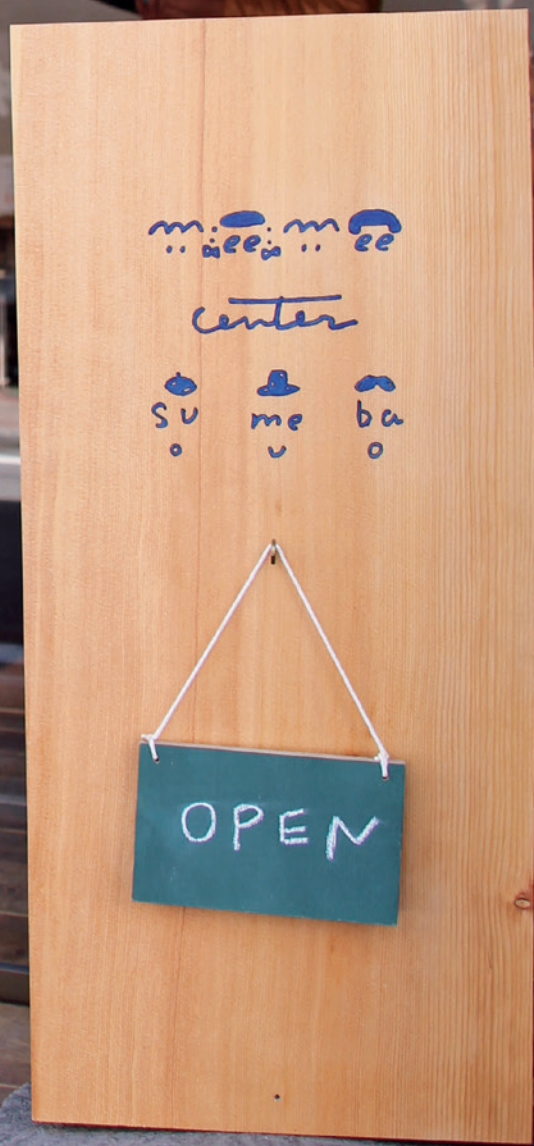 mee mee
center
su me ba
OPEN